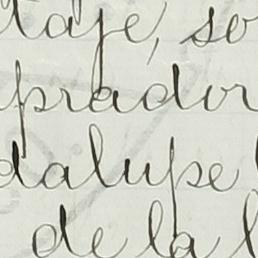 taje, so
prador
dalupe
de la l